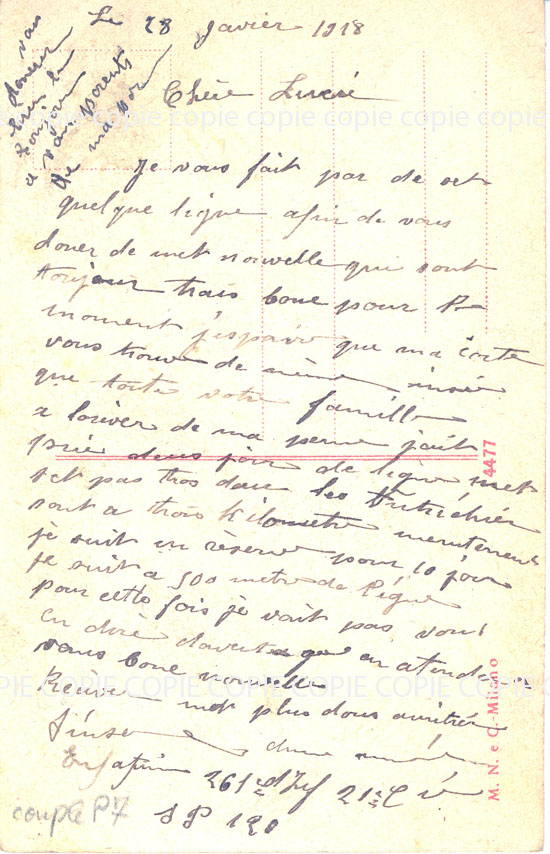 Le 28 Javier 1918
Chère Lucie
Je vous fait par de set
quelque ligne afin de vous
doner de met nouvelle qui sont
toujour trais bone pour le
moment j'espaire que ma carte
vous trouve de même insie
que toute votre famille
a louver de ma pene jait
prie deus jour de ligne met
set pas tros dure les Autrichien
sont a trois Kilometre mentenent
je suit en réserve pour 10 jour
je suit a 500 metre de ligne
pour cette fois je vait pas vous
en dire daventage en atendant
vous bone nouvelle
Reçever met plus dous amitiés
Sinsere dun ami
261e d'Inf 21e Cie
SP 120
vous
doneret
bien le
bonjour
a vous parents
de ma par
COPIE COPIE COPIE COPIE COPIE COPIE COPIE COPIE
COPIE COPIE COPIE COPIE COPIE COPIE COPIE COPIE
4477
M. N. e C.-Milano
couple P7